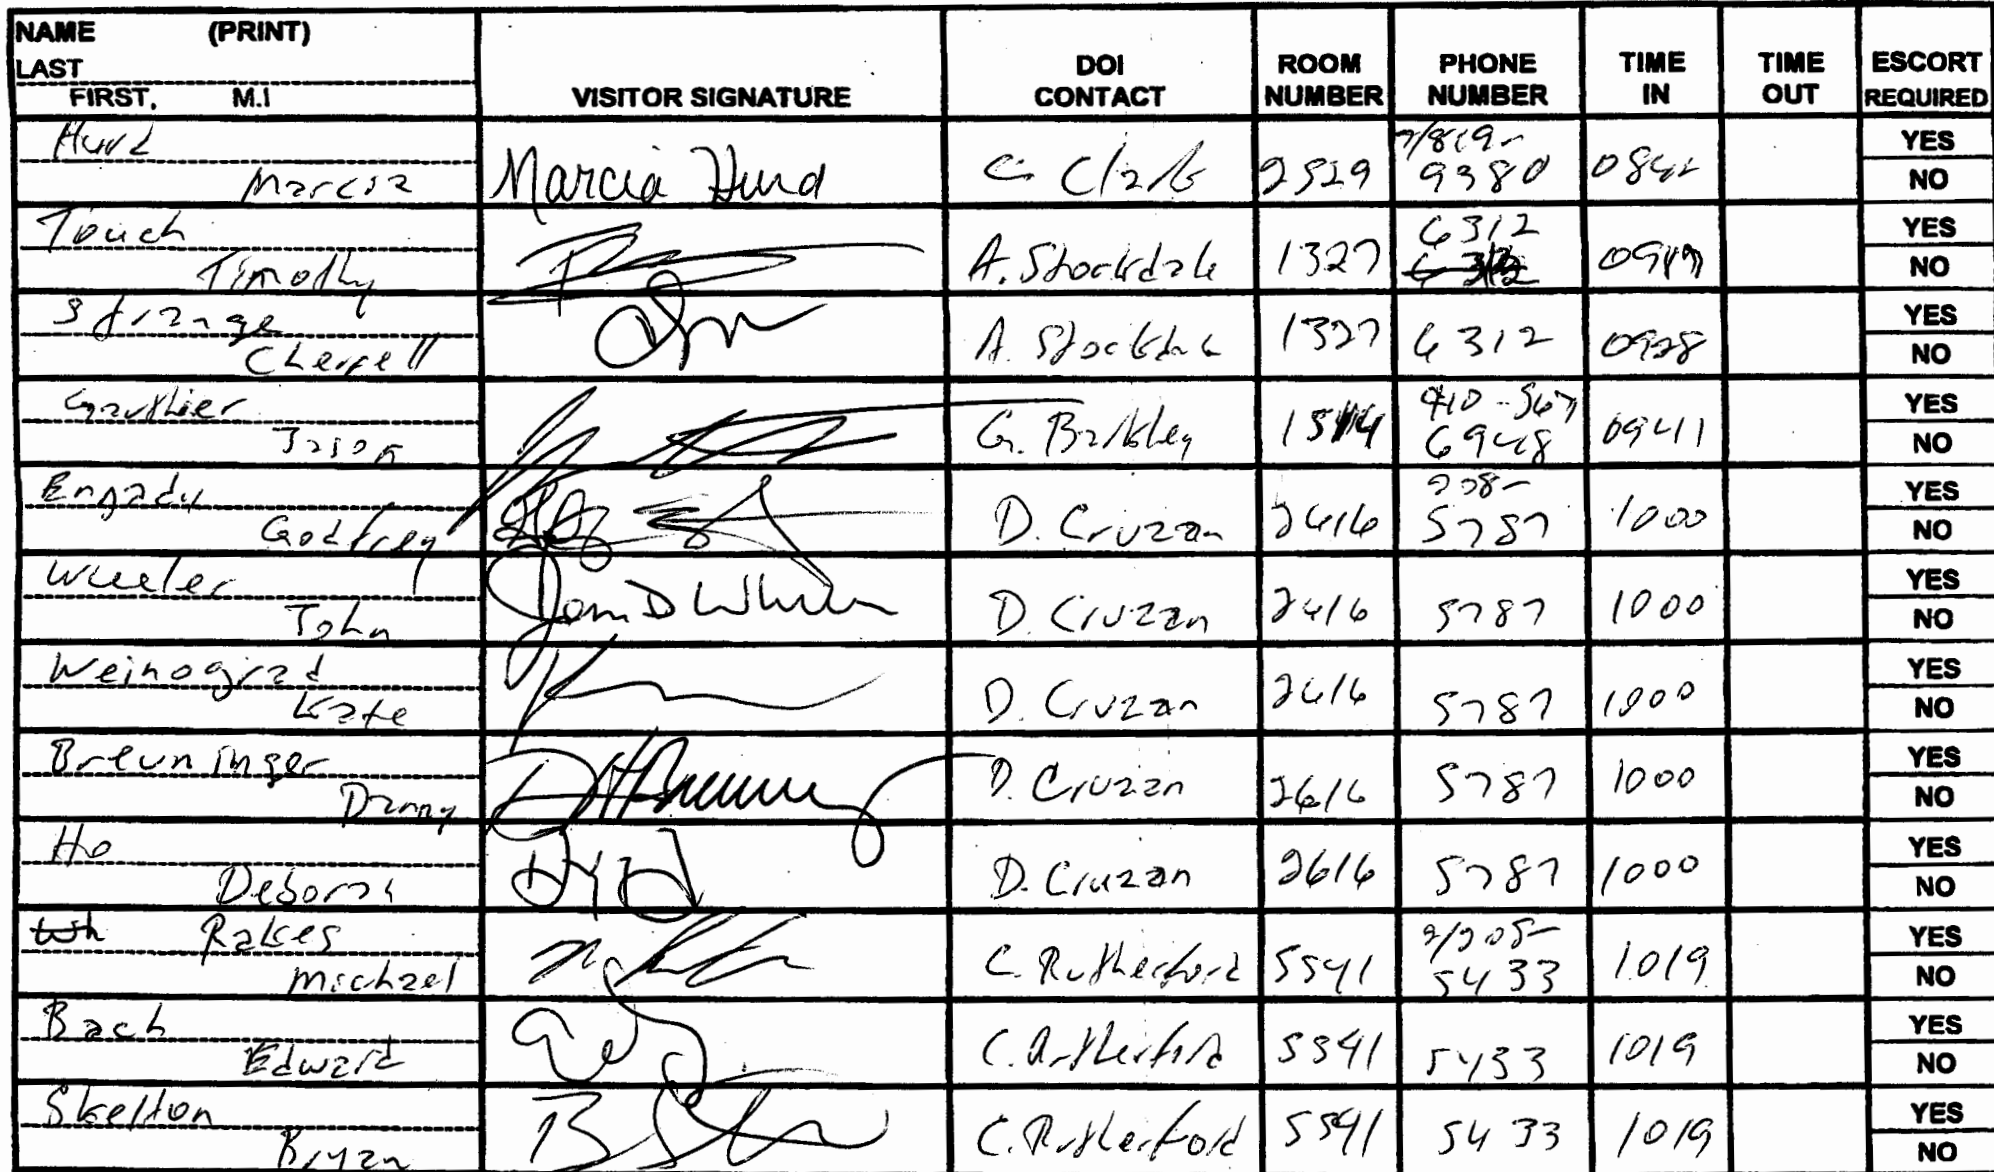 NAME (PRINT)
LAST
FIRST, M.I
VISITOR SIGNATURE
DOI CONTACT
ROOM NUMBER
PHONE NUMBER
TIME IN
TIME OUT
ESCORT REQUIRED
Hurd
Marcia
Marcia Hurd
C. Clark
2529
9380
YES
NO
Touch
Timothy
A. Stockdale
1327
6312
YES
NO
Strange
Cherrell
A. Stockdale
1327
6312
0928
YES
NO
Gauthier
Jason
G. Barkley
6948
0941
YES
NO
Godfrey
D. Cruzan
2616
208-
5787
1000
YES
NO
Wheeler
John
John D Wheeler
D. Cruzan
2616
5787
1000
YES
NO
Weinograd
Kate
D. Cruzan
2616
5787
1000
YES
NO
Breuninger
Danny
D. Cruzan
2616
5787
1000
YES
NO
Ho
Deborah
D. Cruzan
2616
5787
1000
YES
NO
Rakes
Michael
C. Rutherford
5541
5433
1019
YES
NO
Bach
Edward
C. Rutherford
5541
5433
1019
YES
NO
Skelton
Bryan
C. Rutherford
5541
5433
1019
YES
NO